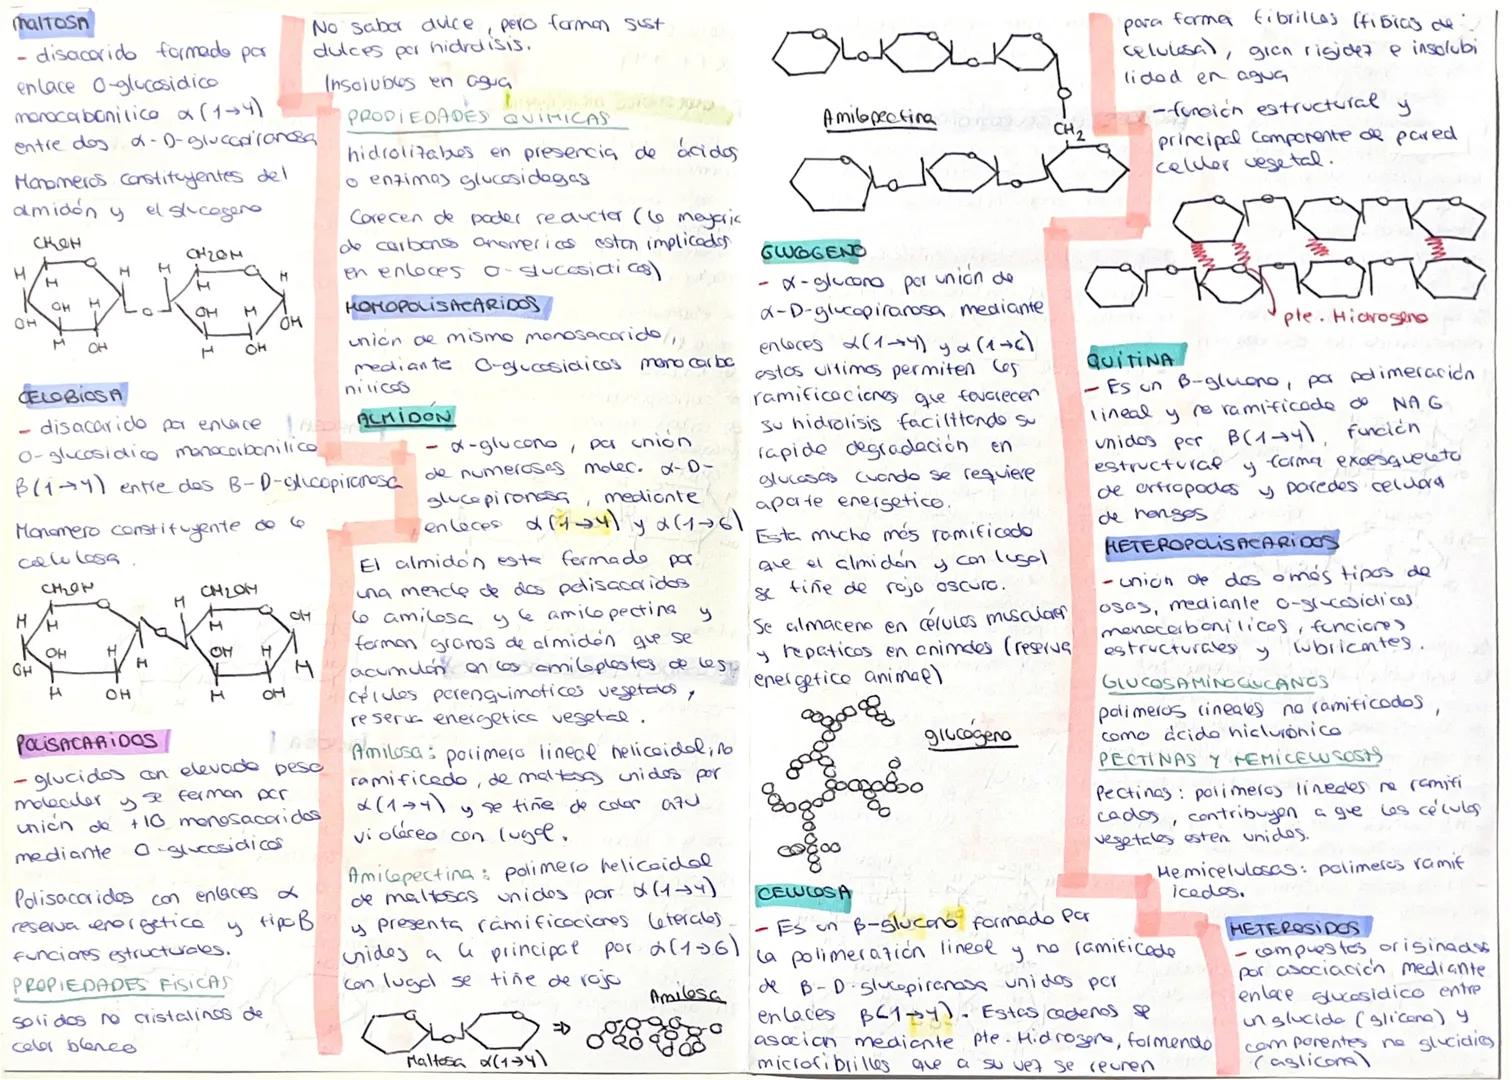 MALTOSA
- disacarido formado por
enlace O-glucosidico
monocarbonilico α(1→4)
entre dos α-D-glucopiranosa
Monomeros constituyentes del
almidón y el glucogeno
CH2OH
CH2OH
H
H
H
H
H
H
OH
H
OH
H
OH
O
OH
H
OH
H
OH
CELOBIOSA
- disacarido por enlace
O-glucosidico monocarbonilico
β(1→4) entre dos B-D-glucopiranosa
Monomero constituyente de la
celulosa.
CH2OH
CH2OH
H
H
H
H
OH
OH
H
OH
H
OH
H
H
H
OH
H
OH
POLISACARIDOS
- glucidos con elevado peso
molecular y se forman por
unión de +10 monosacaridos
mediante O-glucosidicos
Polisacaridos con enlaces α
reserva energetica y tipo B
funciones estructurales.
PROPIEDADES FISICAS
solidos no cristalinos de
color blanco
No sabor dulce, pero forman sust
dulces por hidrolisis.
Insolubles en agua
PROPIEDADES QUIMICAS
hidrolizables en presencia de ácidos
o enzimas glucosidagas
Carecen de poder reductor (la mayoria
de carbonos anomericos estan implicados
en enlaces O-glucosidicos)
HOMOPOLISACARIDOS
unión de mismo monosacarido,
mediante O-glucosidicos monocarbo
nilicos
ALMIDÓN
- α-glucano, por unión
de numerosas molec. α-D-
glucopiranosa, mediante
enlaces α(1→4) y α(1→6)
El almidón esta formado por
una mezcla de dos polisacaridos
la amilosa y la amilopectina y
forman granos de almidón que se
acumulan en los amiloplastos de las
células parenquimaticas vegetales,
reserva energetica vegetal.
Amilosa: polimero lineal helicoidal, no
ramificado, de maltosas unidos por
α(1→4) y se tiñe de color azul
violáceo con lugol.
Amilopectina: polimero helicoidal
de maltosas unidos por α(1→4)
y presenta ramificaciones laterales
unidas a la principal por α(1→6)
con lugol se tiñe de rojo
Amilosa
O
⇒
Maltosa α(1→4)
O
O
O
Amilopectina
CH2
O
O
GLUCOGENO
- α-glucano por unión de
α-D-glucopiranosa mediante
enlaces α(1→4) y α(1→6)
estos ultimos permiten las
ramificaciones que favorecen
su hidrolisis facilitando su
rapida degradación en
glucosas cuando se requiere
aporte energetico.
Esta mucho más ramificado
que el almidón y con lugol
se tiñe de rojo oscuro.
Se almacena en células musculares
y hepaticas en animales (reserva
energetica animal)
glucógeno
CELULOSA
- Es un β-glucano formado por
la polimeración lineal y no ramificada
de B-D-glucopiranosa unidos por
enlaces β(1→4). Estas cadenas se
asocian mediante pte. Hidrogeno, formando
microfibrillas que a su vez se reunen
para formar fibrillas (fibras de
celulosa), gran rigidez e insolubi
lidad en agua
- función estructural y
principal componente de pared
celular vegetal.
pte. Hidrogeno
QUITINA
- Es un B-glucano, por polimeración
lineal y no ramificada de NAG
unidos por β(1→4), función
estructural y forma exoesqueleto
de artropodos y paredes celulara
de hongos
HETEROPOLISACARIDOS
- unión de dos o más tipos de
osas, mediante O-glucosidicos
monocarbonilicos, funciones
estructurales y lubricantes.
GLUCOSAMINOGLUCANOS
polimeros lineales no ramificados,
como ácido hialurónico
PECTINAS Y HEMICELULOSAS
Pectinas: polimeros lineales no ramifi
cados, contribuyen a que las células
vegetales estén unidas.
Hemicelulosas: polimeros ramif
icados.
HETEROSIDOS
- compuestos originados
por asociación mediante
enlace glucosidico entre
un glucido (glicona) y
componentes no glucidicos
(aglicona)